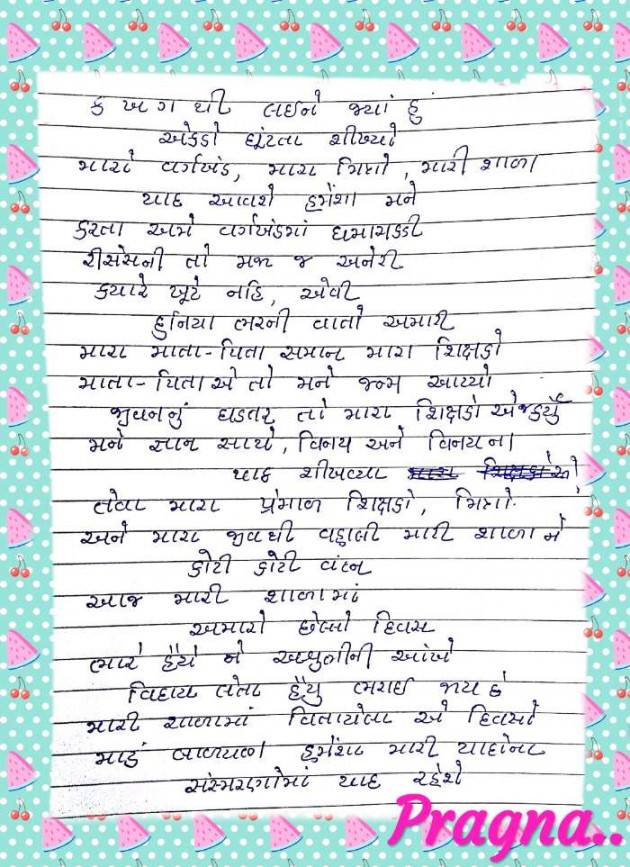 ક ખ ગ થી લઈને જ્યાં હું
એકડો ઘૂંટતા શીખ્યો
મારો વર્ગખંડ, મારા મિત્રો, મારી શાળા
યાદ આવશે હમેંશા મને
કરતા અમે વર્ગખંડમાં ધમાચકડી
રીસેસની તો મજા જ અનેરી
ક્યારે ખૂટે નહિ, એવી
દુનિયા ભરની વાતો અમારી
મારા માતા-પિતા સમાન મારા શિક્ષકો
માતા-પિતાએ તો મને જન્મ આપ્યો
જીવનનું ઘડતર તો મારા શિક્ષકોએ જ કર્યું
મને જ્ઞાન સાથે, વિનય અને વિનયના
પાઠ શીખવ્યા
તેવા મારા પ્રેમાળ શિક્ષકો, મિત્રો
અને મારા જીવથી વહાલી મારી શાળાને
કોટી કોટી વંદન
આજ મારી શાળામાં
અમારો છેલ્લો દિવસ
ભારે હૈયે ને અશ્રુભીની આંખો
વિદાય લેતા હૈયુ ભરાઈ જાય છે
મારી શાળામાં વિતાવેલા એ દિવસો
મારું બાળપણ હમેંશા મારી યાદોના
સંસ્મરણોમાં યાદ રહેશે
Pragna..